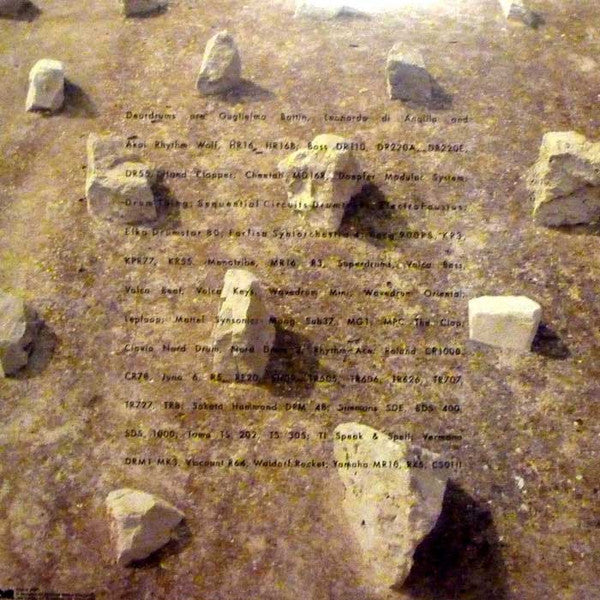 Deardrums are Guglielmo Bottin, Leonardo di Angilla and
Akai Rhythm Wolf, HR16, HR16B; Boss DR110, DR220A, DR220E,
DR55, Hand Clapper; Cheetah MD16R, Doepfer Modular System,
Drum Thing; Sequential Circuits Drumtraks; ElectroFaustus;
Elka Drumstar 80; Farfisa Syntorchestra 4; Korg 900PS, KP3,
KPR77, KR55, Monotribe, MR16, R3, Superdrums, Volca Bass,
Volca Beat, Volca Keys, Wavedrum Mini, Wavedrum Oriental;
Leploop; Mattel Synsonic; Moog Sub37, MG1; MPC The Clap;
Clavia Nord Drum, Nord Drum 2; Rhythm Ace; Roland CR1000,
CR78, Juno 6, R5, RE20, TR505, TR606, TR626, TR707,
TR727, TR8; Sakata Hammond DPM 48; Simmons SDE, SDS 400,
SDS 1000; Tama TS 202, TS 305; TI Speak & Spell; Vermona
DRM1 MK3, Viscount R64, Waldorf Rocket; Yamaha MR10, RX5, CS01II